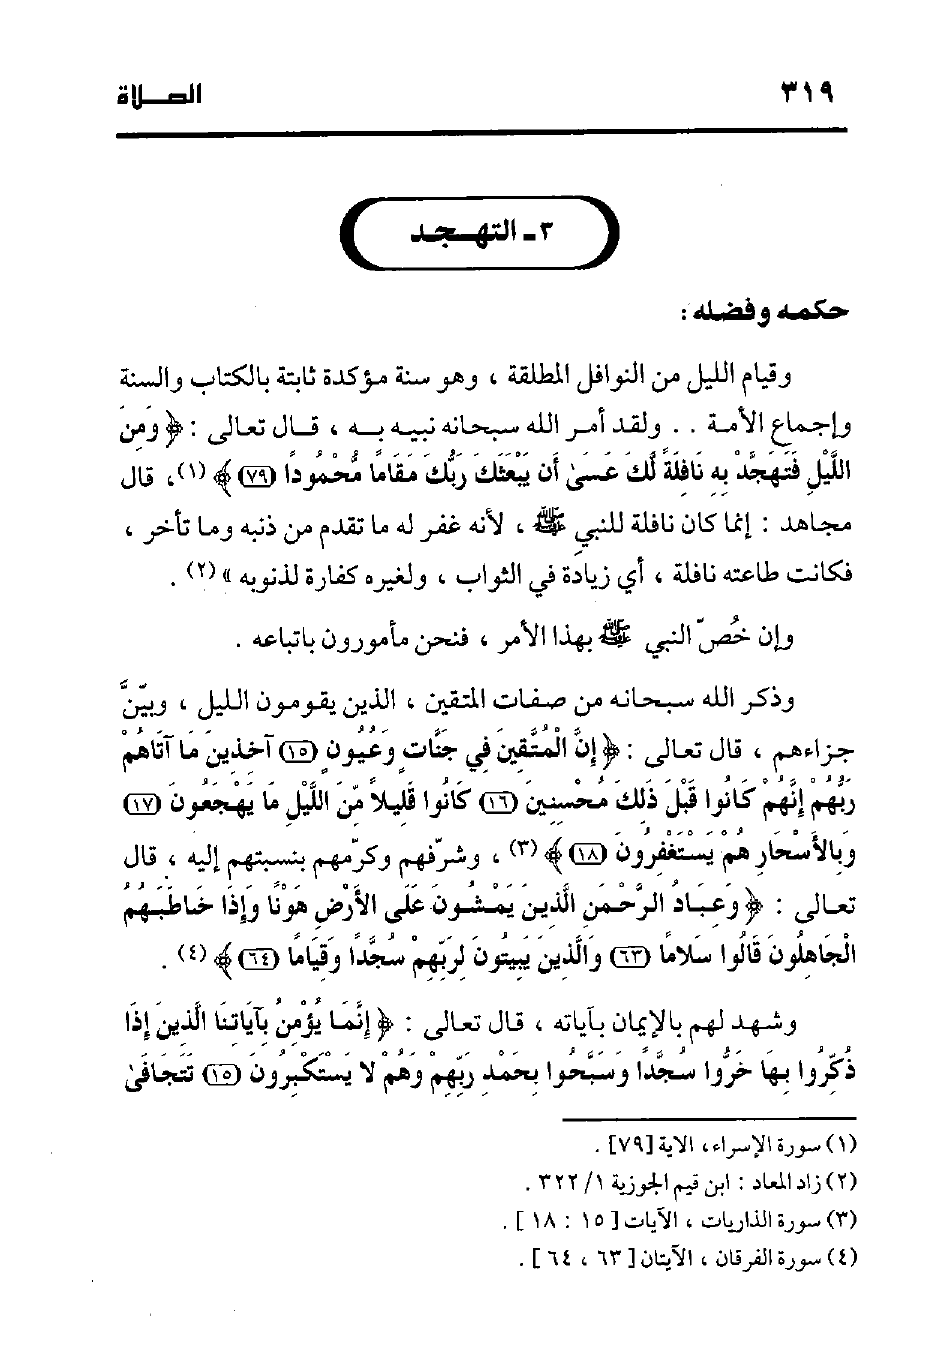 ٣١٩ الصلاة
٣ ـ التهجد
حكمه وفضله :
وقيام الليل من النوافل المطلقة ، وهو سنة مؤكدة ثابتة بالكتاب والسنة
وإجماع الأمة . . ولقد أمر الله سبحانه نبيه به ، قال تعالى : ﴿ وَمِنَ
اللَّيْلِ فَتَهَجَّدْ بِهِ نَافِلَةً لَّكَ عَسَىٰ أَن يَبْعَثَكَ رَبُّكَ مَقَامًا مَّحْمُودًا (٧٩) ﴾ (١)، قال
مجاهد : إنما كان نافلة للنبي ﷺ ، لأنه غفر له ما تقدم من ذنبه وما تأخر ،
فكانت طاعته نافلة ، أي زيادة في الثواب ، ولغيره كفارة لذنوبه » (٢) .
وإن خُصّ النبي ﷺ بهذا الأمر ، فنحن مأمورون باتباعه .
وذكر الله سبحانه من صفات المتقين ، الذين يقومون الليل ، وبيّنَّ
جزاءهم ، قال تعالى : ﴿ إِنَّ الْمُتَّقِينَ فِي جَنَّاتٍ وَعُيُونٍ (١٥) آخِذِينَ مَا آتَاهُمْ
رَبُّهُمْ إِنَّهُمْ كَانُوا قَبْلَ ذَلِكَ مُحْسِنِينَ (١٦) كَانُوا قَلِيلاً مِّنَ اللَّيْلِ مَا يَهْجَعُونَ (١٧)
وَبِالأَسْحَارِ هُمْ يَسْتَغْفِرُونَ (١٨) ﴾ (٣) ، وشرّفهم وكرّمهم بنسبتهم إليه ، قال
تعالى : ﴿ وَعِبَادُ الرَّحْمَنِ الَّذِينَ يَمْشُونَ عَلَى الأَرْضِ هَوْنًا وَإِذَا خَاطَبَهُمُ
الْجَاهِلُونَ قَالُوا سَلامًا (٦٣) وَالَّذِينَ يَبِيتُونَ لِرَبِّهِمْ سُجَّدًا وَقِيَامًا (٦٤) ﴾ (٤) .
وشهد لهم بالإيمان بآياته ، قال تعالى : ﴿ إِنَّمَا يُؤْمِنُ بِآيَاتِنَا الَّذِينَ إِذَا
ذُكِّرُوا بِهَا خَرُّوا سُجَّدًا وَسَبَّحُوا بِحَمْدِ رَبِّهِمْ وَهُمْ لا يَسْتَكْبِرُونَ (١٥) تَتَجَافَىٰ
(١) سورة الإسراء، الاية [٧٩] .
(٢) زاد المعاد : ابن قيم الجوزية ١/ ٣٢٢ .
(٣) سورة الذاريات ، الآيات [ ١٥ : ١٨ ] .
(٤) سورة الفرقان ، الآيتان [ ٦٣ ، ٦٤ ] .